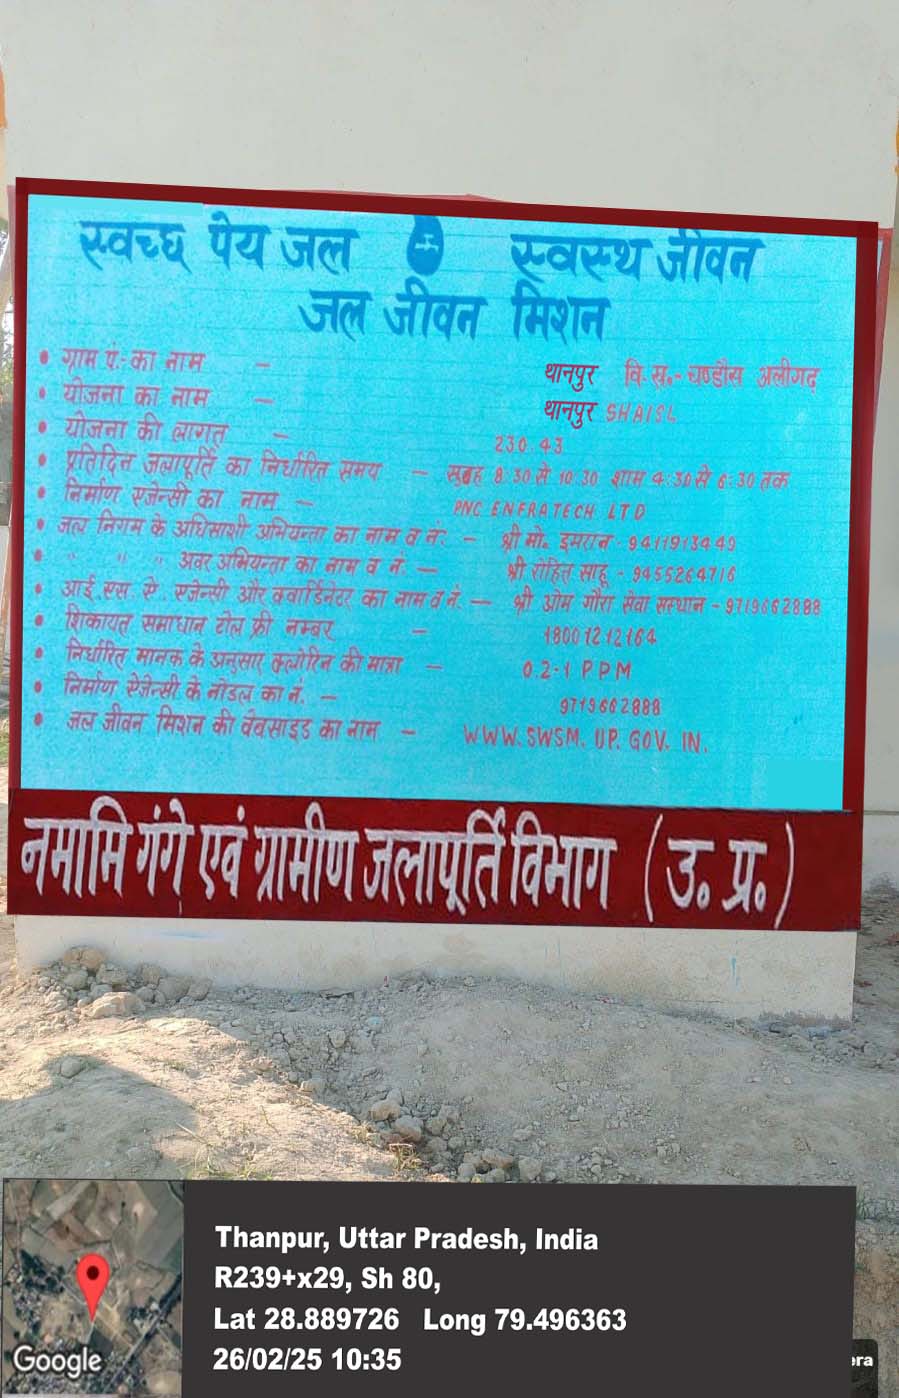 स्वच्छ पेय जल स्वस्थ जीवन
जल जीवन मिशन
• ग्राम पं.-का नाम - थानपुर वि.ख.- चण्डौस अलीगढ़
• योजना का नाम - थानपुर SHAISL
• योजना की लागत - 230.43
• प्रतिदिन जलापूर्ति का निर्धारित समय - सुबह 8:30 से 10:30 शाम 4:30 से 6:30 तक
• निर्माण एजेन्सी का नाम - PNC ENFRATECH LTD
• जल निगम के अधिसाशी अभियन्ता का नाम व नं: - श्री मो. इमरान - 9411913449
• " " " अवर अभियन्ता का नाम व नं. - श्री रोहित साहू - 9455264716
• आई.एस.ऐ. एजेन्सी और क्वार्डिनेटर का नाम व नं. - श्री ओम गौरा सेवा सस्थान - 9719662888
• शिकायत समाधान टोल फ्री नम्बर - 18001212164
• निर्धारित मानक के अनुसार क्लोरिन की मात्रा - 0.2-1 PPM
• निर्माण ऐजेन्सी के नोडल का नं. - 9719662888
• जल जीवन मिशन की वेबसाइड का नाम - WWW.SWSM.UP.GOV.IN.
नमामि गंगे एवं ग्रामीण जलापूर्ति विभाग (उ.प्र.)
Thanpur, Uttar Pradesh, India
R239+x29, Sh 80,
Lat 28.889726 Long 79.496363
26/02/25 10:35
Google
era